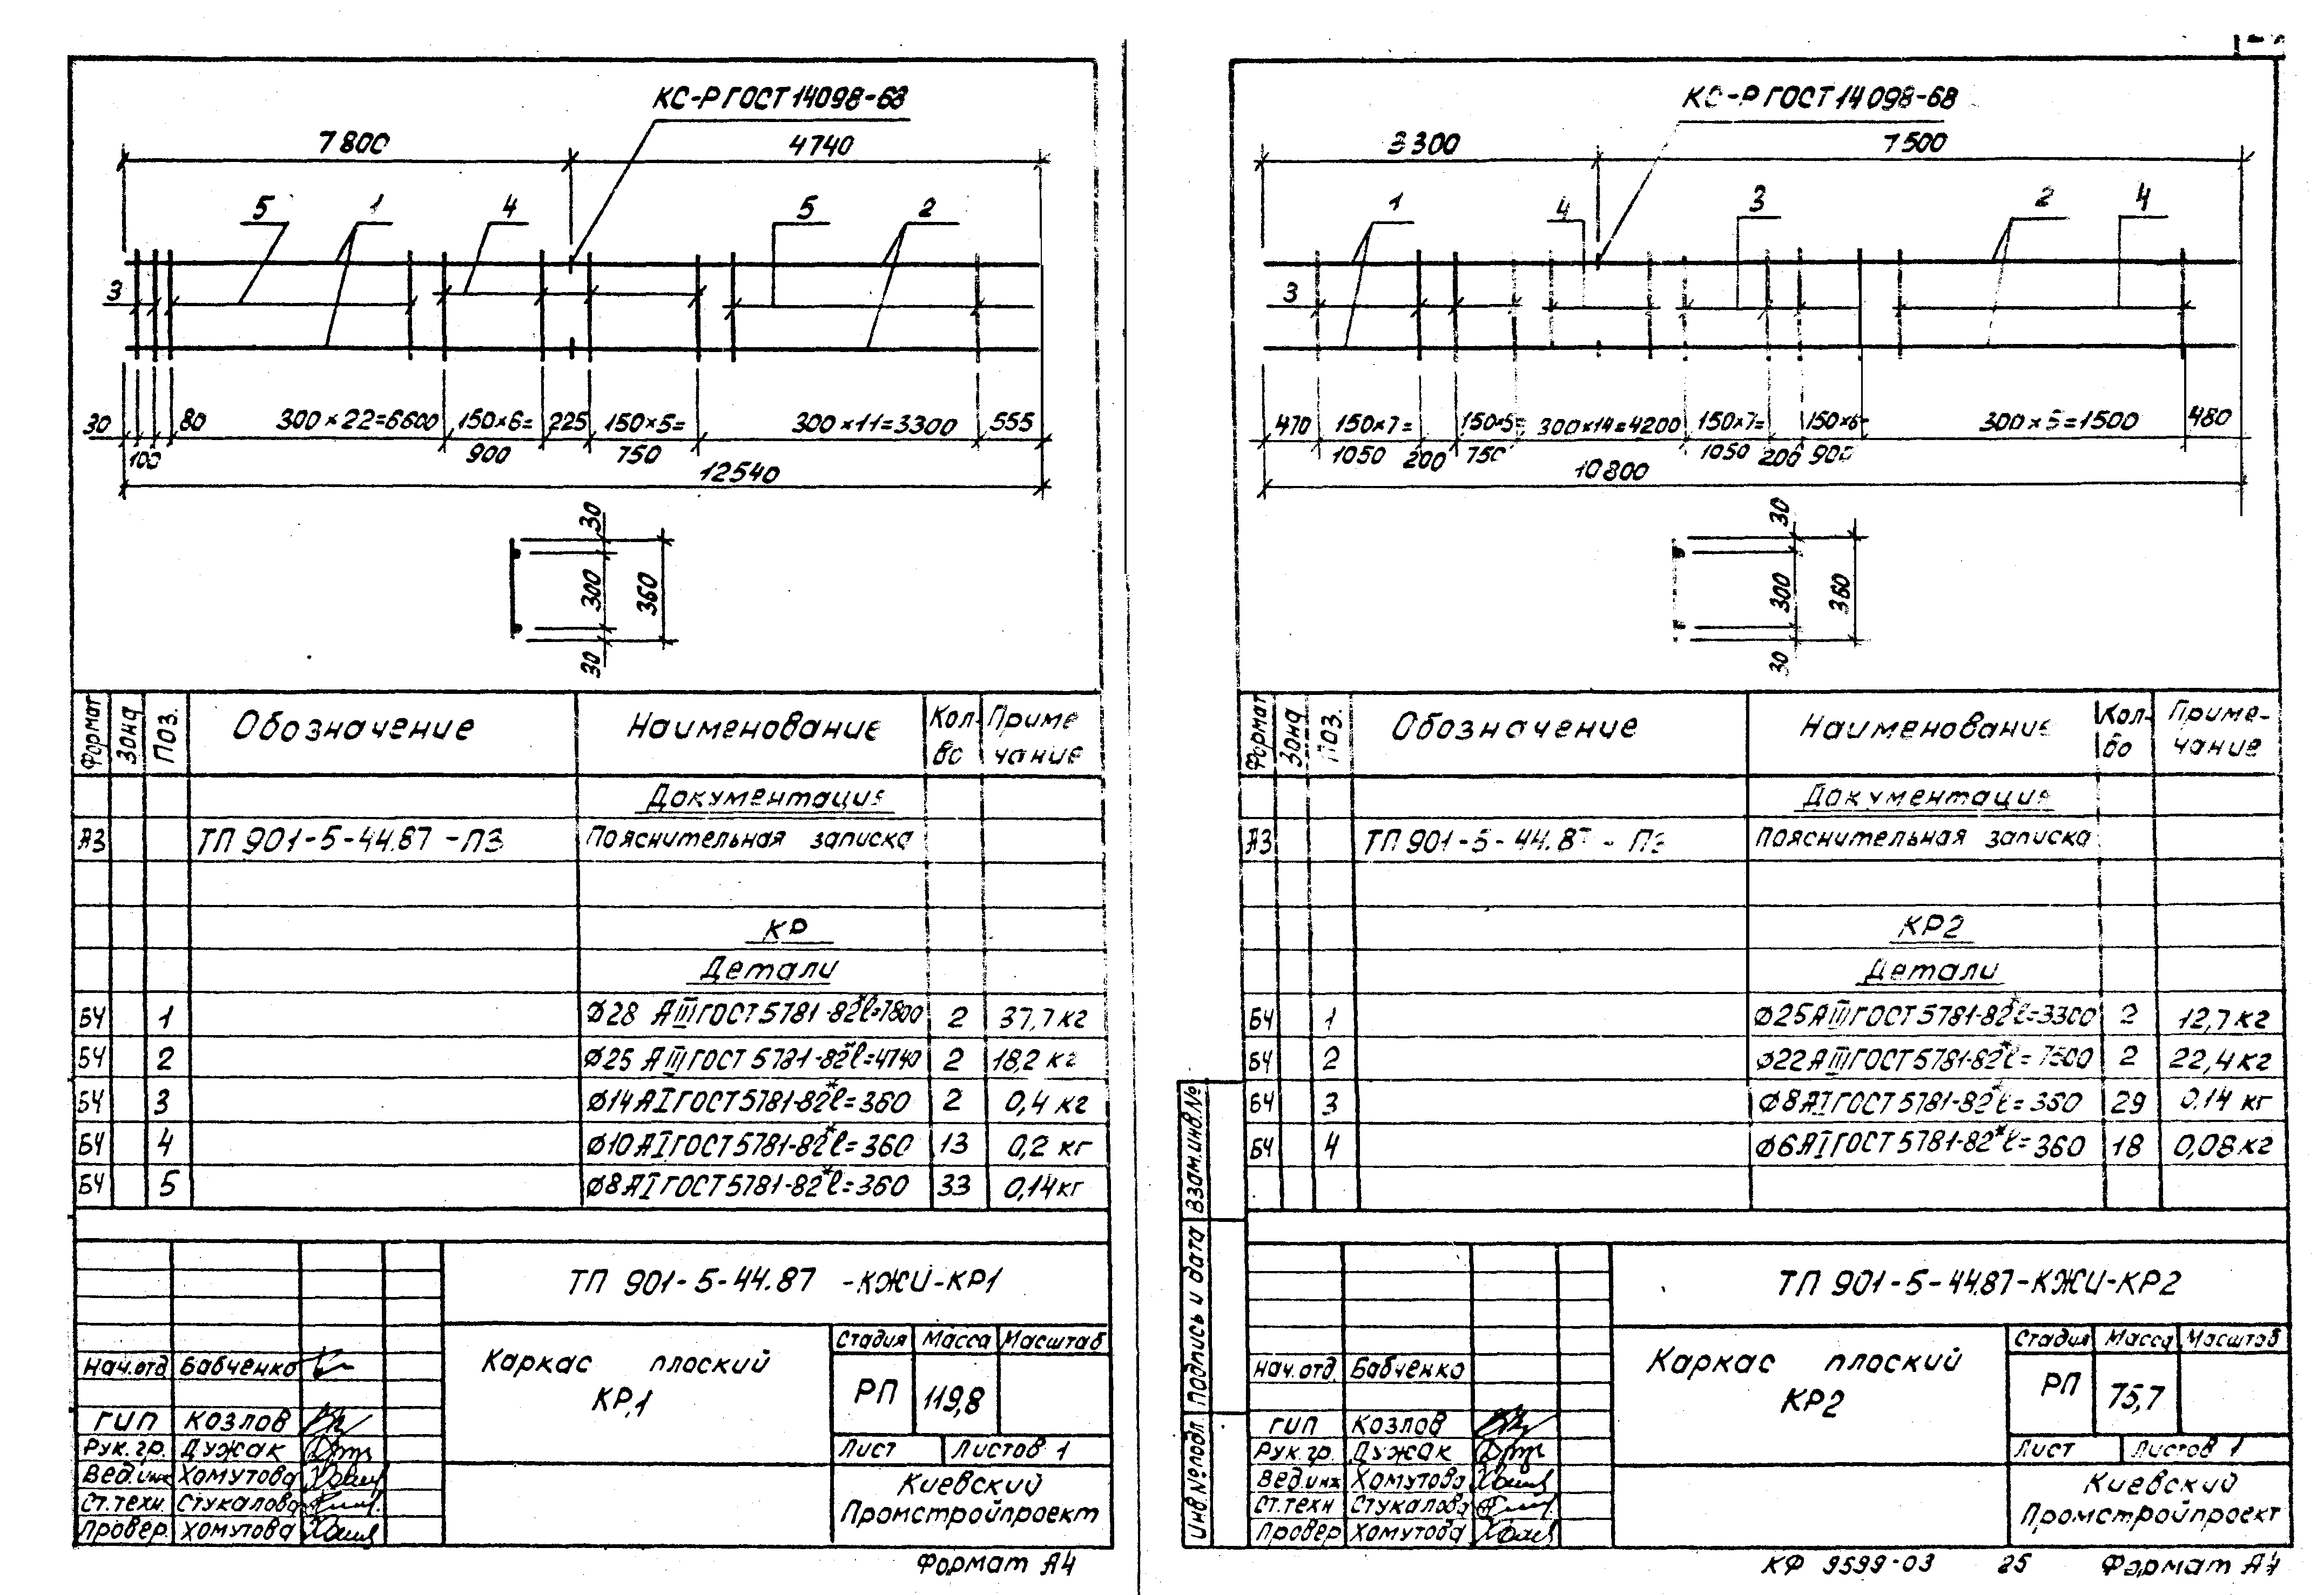 КС-Р ГОСТ 14098-68
7800
4740
5
1
4
5
2
3
30
80
300×22=6600
150×6=
225
150×5=
300×11=3300
555
100
900
750
12540
30
300
360
30
Формат
Зона
Поз.
Обозначение
Наименование
Кол-во
Примечание
Документация
А3
ТП 901-5-44.87 -ПЗ
Пояснительная записка
КР
Детали
БЧ 1 ⌀28 АIII ГОСТ 5781-82* ℓ=7800 2 37,7 кг
БЧ 2 ⌀25 АIII ГОСТ 5781-82* ℓ=4740 2 18,2 кг
БЧ 3 ⌀14 АI ГОСТ 5781-82* ℓ=360 2 0,4 кг
БЧ 4 ⌀10 АI ГОСТ 5781-82* ℓ=360 13 0,2 кг
БЧ 5 ⌀8 АI ГОСТ 5781-82* ℓ=360 33 0,14 кг
ТП 901-5-44.87 -КЖИ-КР1
Каркас плоский
КР.1
Стадия Масса Масштаб
РП 119,8
Лист Листов 1
Киевский
Промстройпроект
Нач.отд Бабченко
ГИП Козлов
Рук. гр. Дужак
Вед.инж Хомутова
Ст.техн. Стукалова
Провер. Хомутова
Формат А4
КС-Р ГОСТ 14098-68
3300
7500
1
4
3
2
4
3
470
150×7=
150×5=
300×14=4200
150×7=
150×6=
300×5=1500
480
1050
200
750
1050
200
900
10800
30
300
360
30
Формат
Зона
Поз.
Обозначение
Наименование
Кол-во
Приме-чание
Документация
А3
ТП 901-5-44.87 - ПЗ
Пояснительная записка
КР2
Детали
БЧ 1 ⌀25 АIII ГОСТ 5781-82* ℓ=3300 2 12,7 кг
БЧ 2 ⌀22 АIII ГОСТ 5781-82* ℓ=7500 2 22,4 кг
БЧ 3 ⌀8 АI ГОСТ 5781-82* ℓ=360 29 0,14 кг
БЧ 4 ⌀6 АI ГОСТ 5781-82* ℓ=360 18 0,08 кг
Взам.инв.№
Подпись и дата
Инв.№подл.
ТП 901-5-44.87-КЖИ-КР2
Каркас плоский
КР2
Стадия Масса Масштаб
РП 75,7
Лист Листов 1
Киевский
Промстройпроект
Нач.отд. Бабченко
ГИП Козлов
Рук. гр. Дужак
Вед.инж Хомутова
Ст.техн Стукалова
Провер Хомутова
КФ 9599-03 25 Формат А4